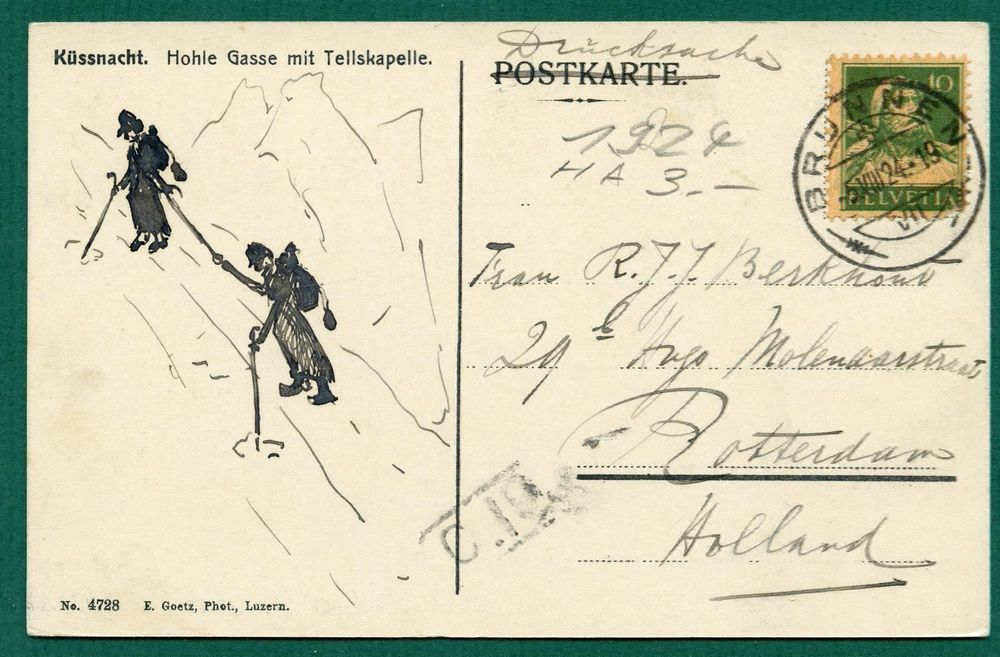 Küssnacht. Hohle Gasse mit Tellskapelle.
Drucksache
POSTKARTE.
1924
HA 3.-
10
HELVETIA
BRUNNEN
VIII 24-19
Frau R. J. J. Berkhout
29 b Hugo Molenaarstraat
Rotterdam
Holland
C.10
No. 4728 E. Goetz, Phot., Luzern.